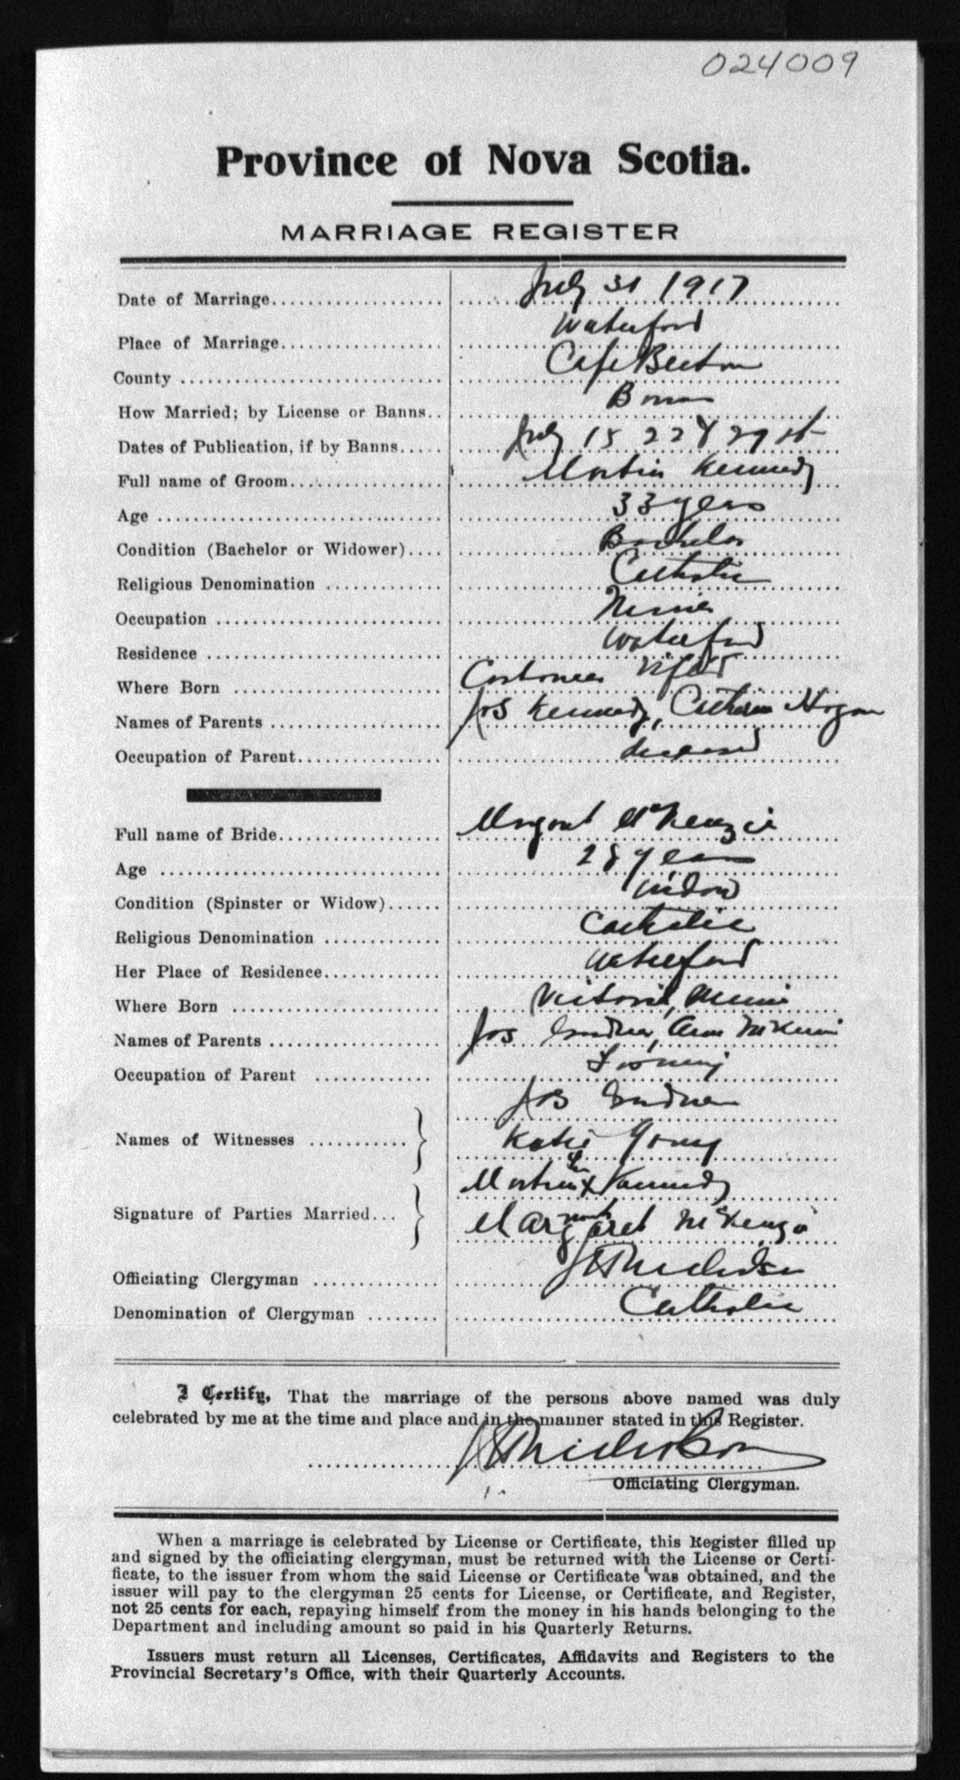 024009
Province of Nova Scotia.
MARRIAGE REGISTER
Date of Marriage.................... July 31 1917
Place of Marriage................... Waterford
County ............................ Cape Breton
How Married; by License or Banns.. Banns
Dates of Publication, if by Banns..... July 15 22 & 29th
Full name of Groom................ Martin Kennedy
Age ............................... 33 years
Condition (Bachelor or Widower).... Bachelor
Religious Denomination ............. Catholic
Occupation ........................ Miner
Residence ......................... Waterford
Where Born ...................... Nfld
Names of Parents .................. Jos Kennedy, Catherine Hogan
Occupation of Parent............... deceased
Full name of Bride.................. Margaret McKenzie
Age ............................... 28 years
Condition (Spinster or Widow)...... Widow
Religious Denomination ............. Catholic
Her Place of Residence............. Waterford
Where Born ....................... Victoria, Mines
Names of Parents .................. Jos Gardner, Ann
Occupation of Parent ..............
Jos Gardner
Names of Witnesses ............ Katie Young
Martin his x mark Kennedy
Signature of Parties Married... Margaret McKenzie
Officiating Clergyman ............. Nicholson
Denomination of Clergyman ......... Catholic
I Certify, That the marriage of the persons above named was duly
celebrated by me at the time and place and in the manner stated in this Register.
Nicholson
Officiating Clergyman.
When a marriage is celebrated by License or Certificate, this Register filled up
and signed by the officiating clergyman, must be returned with the License or Certi-
ficate, to the issuer from whom the said License or Certificate was obtained, and the
issuer will pay to the clergyman 25 cents for License, or Certificate, and Register,
not 25 cents for each, repaying himself from the money in his hands belonging to the
Department and including amount so paid in his Quarterly Returns.
Issuers must return all Licenses, Certificates, Affidavits and Registers to the
Provincial Secretary's Office, with their Quarterly Accounts.